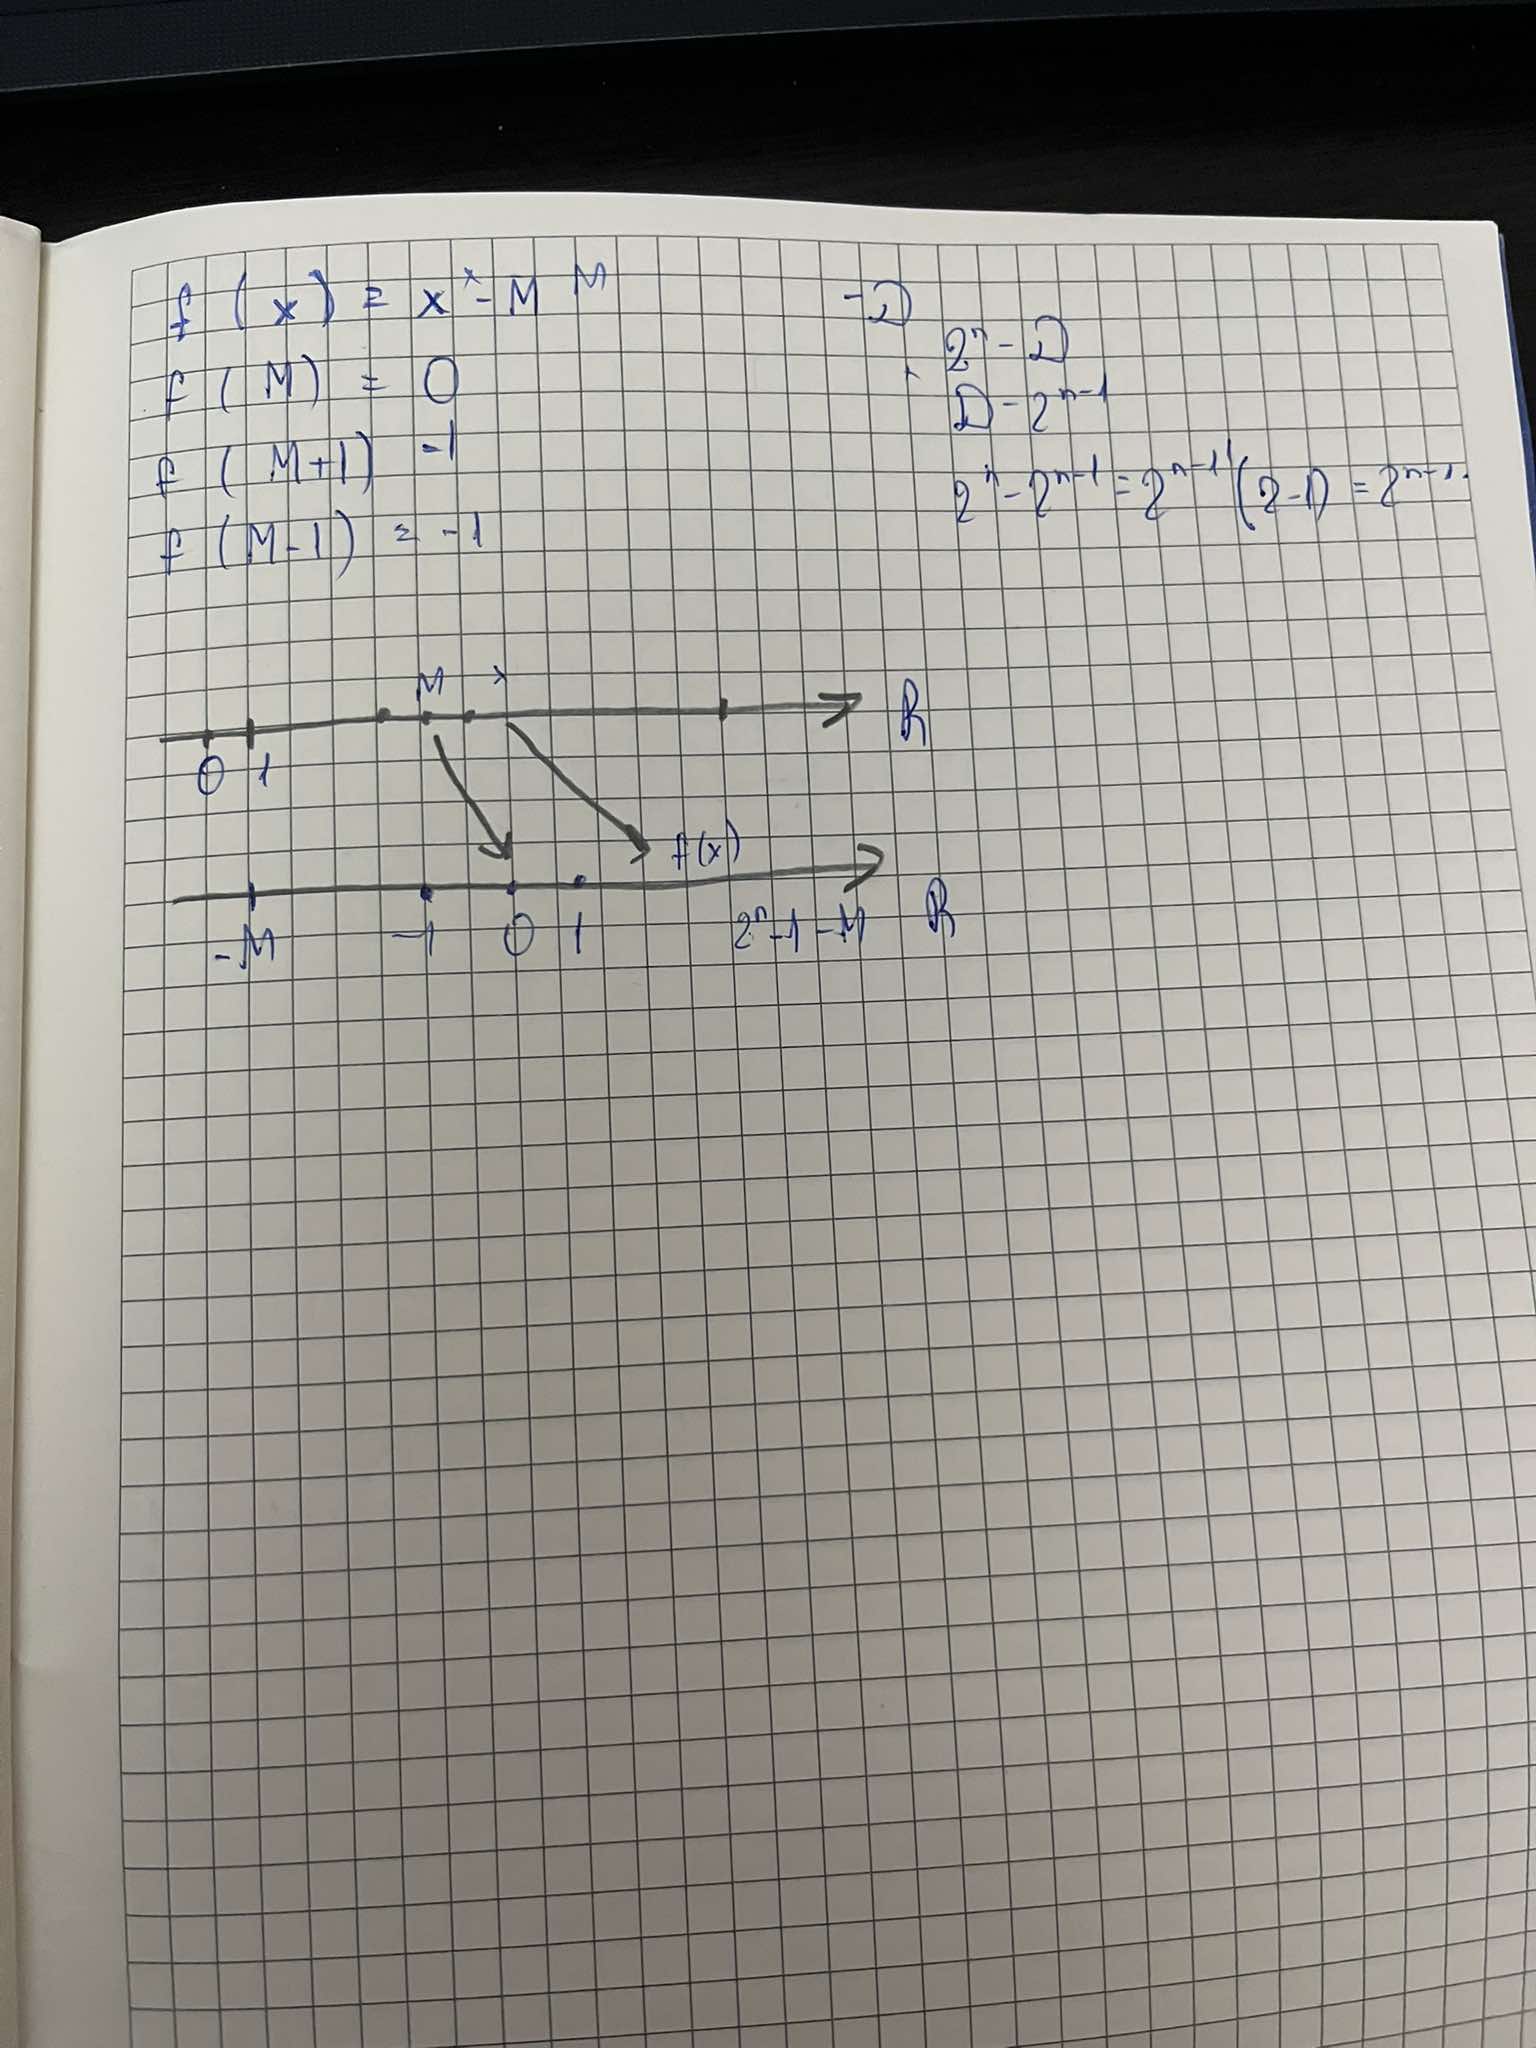 f(x) = x^x - M M
f(M) = 0
f(M+1) -1
f(M-1) = -1
-D
2^n - D
D - 2^{n-1}
2^n - 2^{n-1} = 2^{n-1}(2-1) = 2^{n-1}.
M x
0 1 R
f(x)
-M -1 0 1 2^n-1-M R